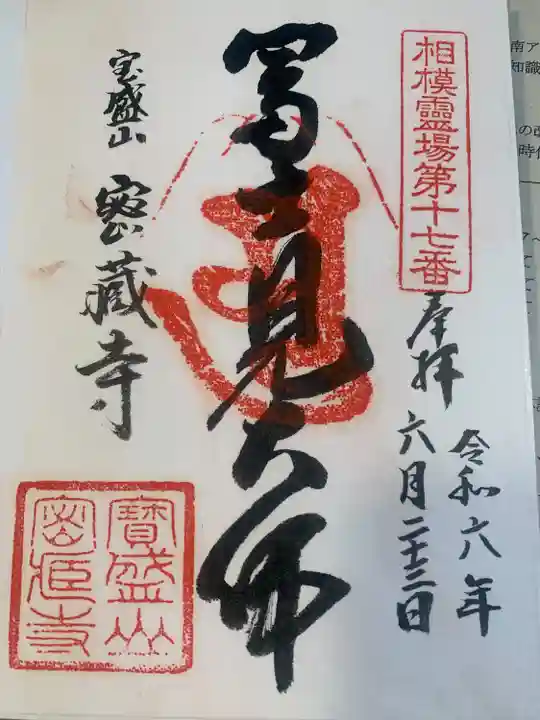 相模霊場第十七番
奉拝
令和六年
六月二十三日
冨士見大師
宝盛山
密蔵寺
寶盛山
密蔵寺
南ア
知識